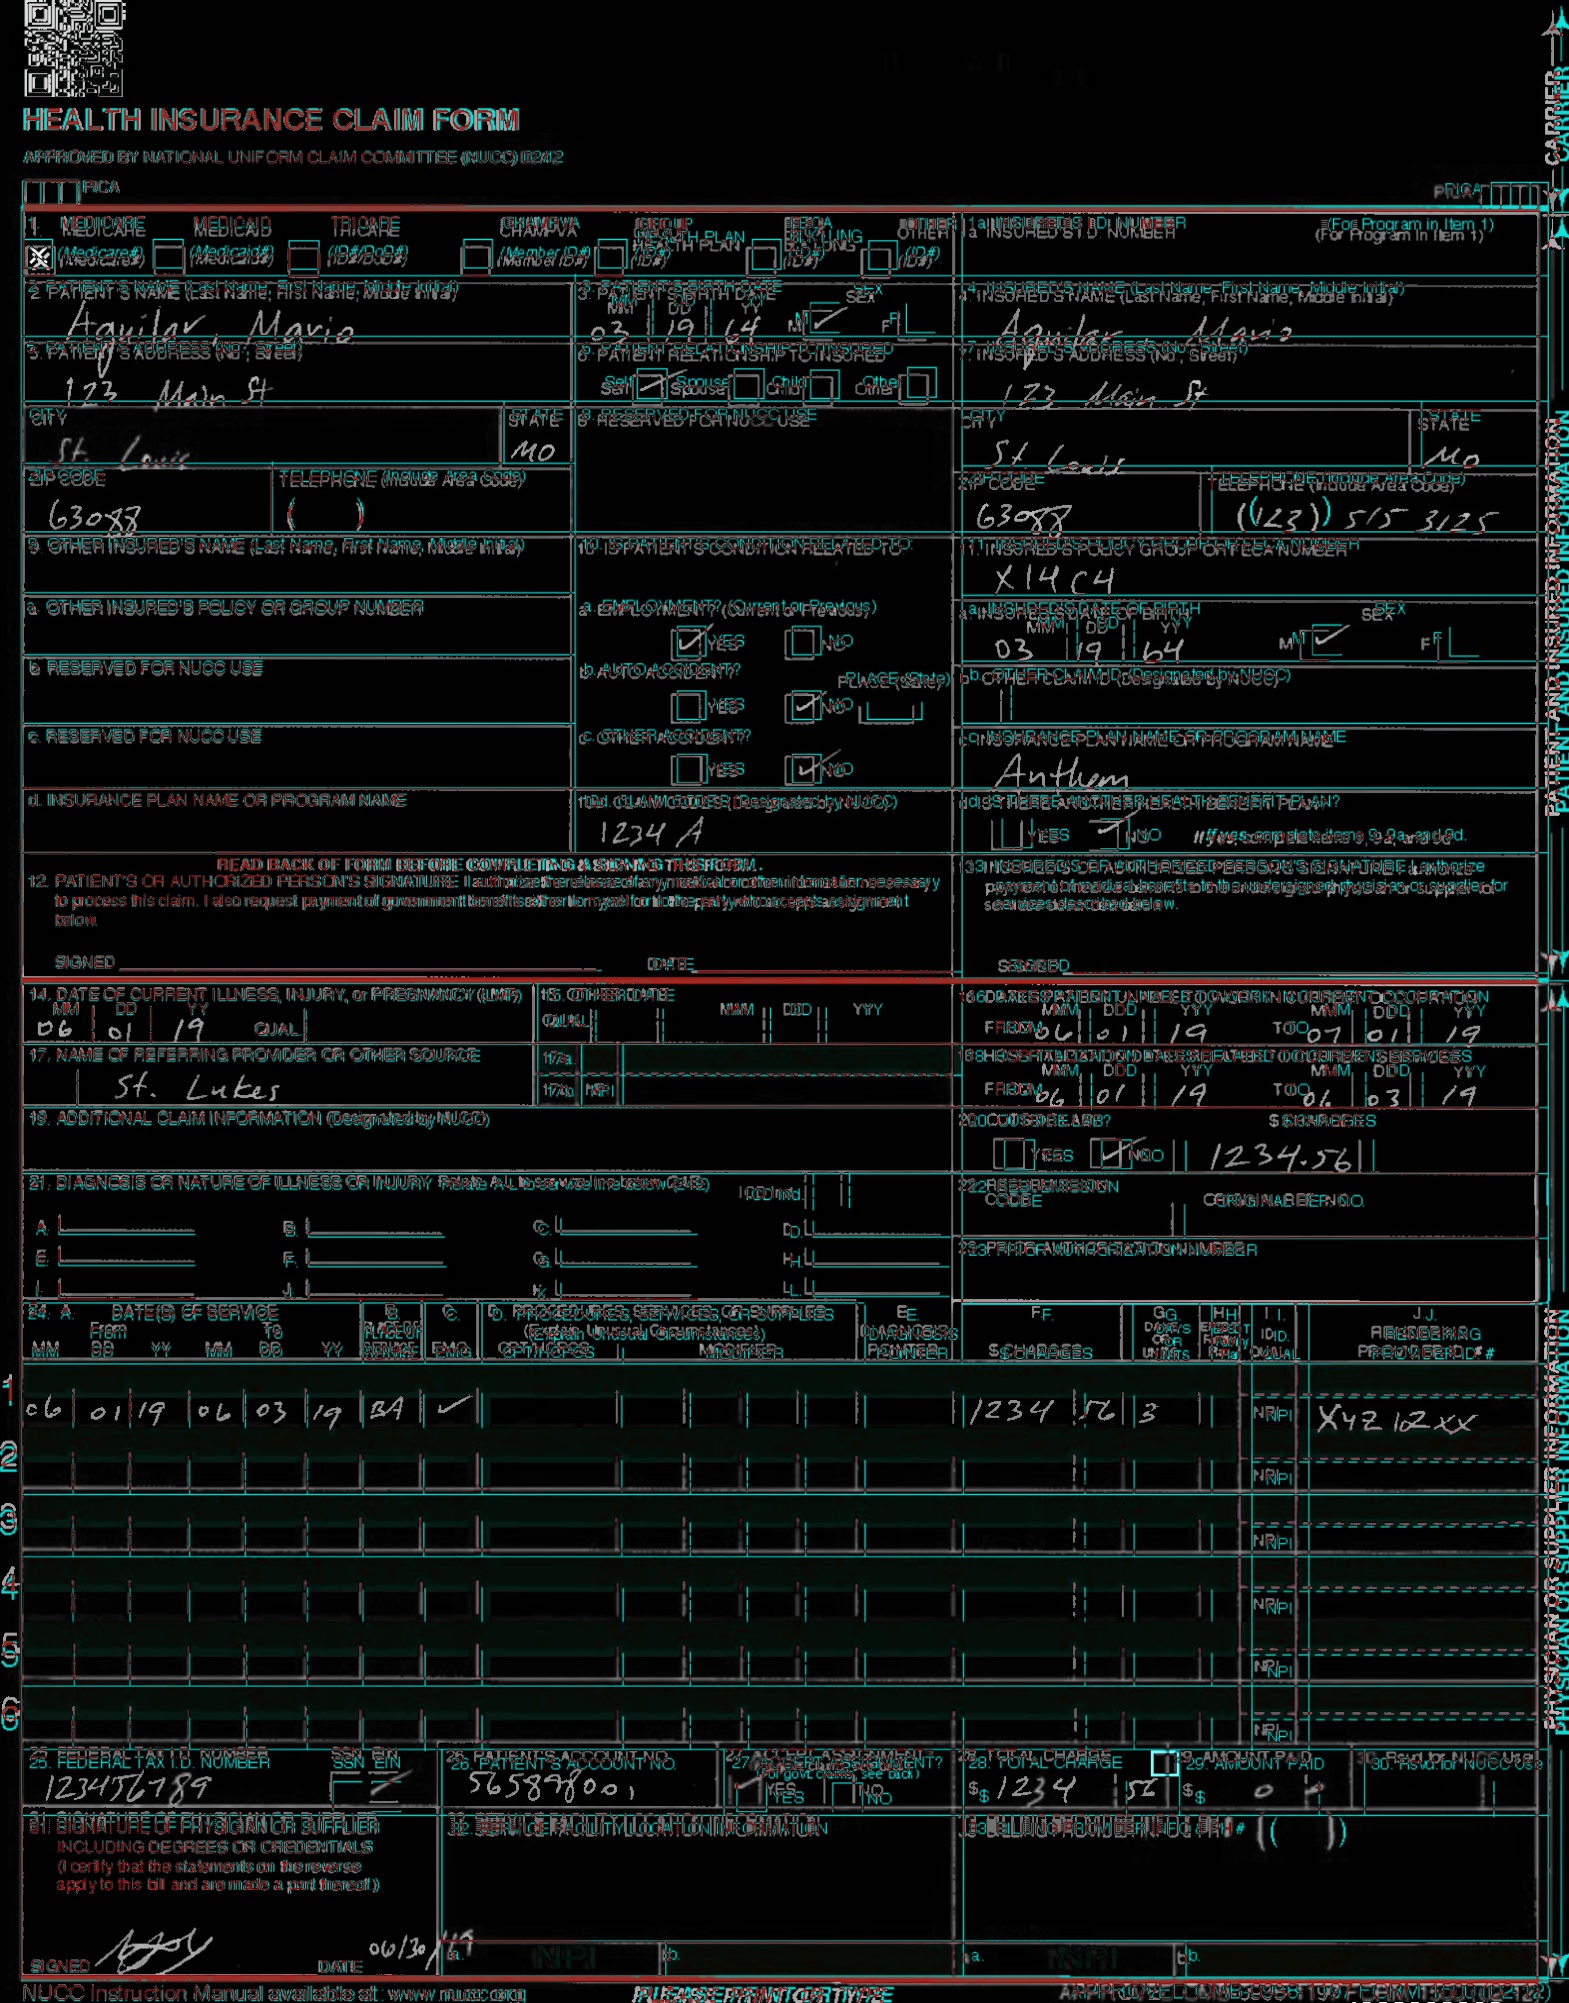 HEALTH INSURANCE CLAIM FORM
APPROVED BY NATIONAL UNIFORM CLAIM COMMITTEE (NUCC) 02/12
PICA PICA
CARRIER
1. MEDICARE MEDICAID TRICARE CHAMPVA GROUP HEALTH PLAN FECA BLK LUNG OTHER
(Medicare#) (Medicaid#) (ID#/DoD#) (Member ID#) (ID#) (ID#) (ID#)
1a. INSURED'S I.D. NUMBER (For Program in Item 1)
2. PATIENT'S NAME (Last Name, First Name, Middle Initial)
Aguilar, Mario
3. PATIENT'S BIRTH DATE SEX
MM DD YY
03 19 64 M F
4. INSURED'S NAME (Last Name, First Name, Middle Initial)
Aguilar, Mario
5. PATIENT'S ADDRESS (No., Street)
123 Main St
6. PATIENT RELATIONSHIP TO INSURED
Self Spouse Child Other
7. INSURED'S ADDRESS (No., Street)
123 Main St
CITY STATE
St. Louis MO
8. RESERVED FOR NUCC USE
CITY STATE
St Louis MO
ZIP CODE TELEPHONE (Include Area Code)
63088 ( )
ZIP CODE TELEPHONE (Include Area Code)
63088 (123) 515 3125
9. OTHER INSURED'S NAME (Last Name, First Name, Middle Initial)
10. IS PATIENT'S CONDITION RELATED TO:
11. INSURED'S POLICY GROUP OR FECA NUMBER
X14C4
a. OTHER INSURED'S POLICY OR GROUP NUMBER
a. EMPLOYMENT? (Current or Previous)
YES NO
a. INSURED'S DATE OF BIRTH SEX
MM DD YY
03 19 64 M F
b. RESERVED FOR NUCC USE
b. AUTO ACCIDENT? PLACE (State)
YES NO
b. OTHER CLAIM ID (Designated by NUCC)
c. RESERVED FOR NUCC USE
c. OTHER ACCIDENT?
YES NO
c. INSURANCE PLAN NAME OR PROGRAM NAME
Anthem
d. INSURANCE PLAN NAME OR PROGRAM NAME
10d. CLAIM CODES (Designated by NUCC)
1234 A
d. IS THERE ANOTHER HEALTH BENEFIT PLAN?
YES NO If yes, complete items 9, 9a, and 9d.
PATIENT AND INSURED INFORMATION
READ BACK OF FORM BEFORE COMPLETING & SIGNING THIS FORM.
12. PATIENT'S OR AUTHORIZED PERSON'S SIGNATURE I authorize the release of any medical or other information necessary
to process this claim. I also request payment of government benefits either to myself or to the party who accepts assignment
below.
SIGNED DATE
13. INSURED'S OR AUTHORIZED PERSON'S SIGNATURE I authorize
payment of medical benefits to the undersigned physician or supplier for
services described below.
SIGNED
14. DATE OF CURRENT ILLNESS, INJURY, or PREGNANCY (LMP)
MM DD YY
06 01 19 QUAL.
15. OTHER DATE
QUAL. MM DD YY
16. DATES PATIENT UNABLE TO WORK IN CURRENT OCCUPATION
MM DD YY MM DD YY
FROM 06 01 19 TO 07 01 19
17. NAME OF REFERRING PROVIDER OR OTHER SOURCE
St. Lukes
17a.
17b. NPI
18. HOSPITALIZATION DATES RELATED TO CURRENT SERVICES
MM DD YY MM DD YY
FROM 06 01 19 TO 06 03 19
19. ADDITIONAL CLAIM INFORMATION (Designated by NUCC)
20. OUTSIDE LAB? $ CHARGES
YES NO 1234.56
21. DIAGNOSIS OR NATURE OF ILLNESS OR INJURY Relate A-L to service line below (24E) ICD Ind.
A. B. C. D.
E. F. G. H.
I. J. K. L.
22. RESUBMISSION CODE ORIGINAL REF. NO.
23. PRIOR AUTHORIZATION NUMBER
24. A. DATE(S) OF SERVICE B. C. D. PROCEDURES, SERVICES, OR SUPPLIES E. F. G. H. I. J.
From To PLACE OF SERVICE EMG (Explain Unusual Circumstances) DIAGNOSIS POINTER $ CHARGES DAYS OR UNITS ID. QUAL. RENDERING PROVIDER ID. #
MM DD YY MM DD YY CPT/HCPCS MODIFIER
1 06 01 19 06 03 19 BA 1234 56 3 NPI XYZ12XX
2 NPI
3 NPI
4 NPI
5 NPI
6 NPI
PHYSICIAN OR SUPPLIER INFORMATION
25. FEDERAL TAX I.D. NUMBER SSN EIN
123456789
26. PATIENT'S ACCOUNT NO.
27. ACCEPT ASSIGNMENT?
(For govt. claims, see back)
YES NO
28. TOTAL CHARGE
$ 1234 56
29. AMOUNT PAID
$ 0
30. Rsvd for NUCC Use
31. SIGNATURE OF PHYSICIAN OR SUPPLIER
INCLUDING DEGREES OR CREDENTIALS
(I certify that the statements on the reverse
apply to this bill and are made a part thereof.)
SIGNED DATE 06/30/19
32. SERVICE FACILITY LOCATION INFORMATION
a. NPI b.
33. BILLING PROVIDER INFO & PH # ( )
a. NPI b.
NUCC Instruction Manual available at: www.nucc.org
PLEASE PRINT OR TYPE